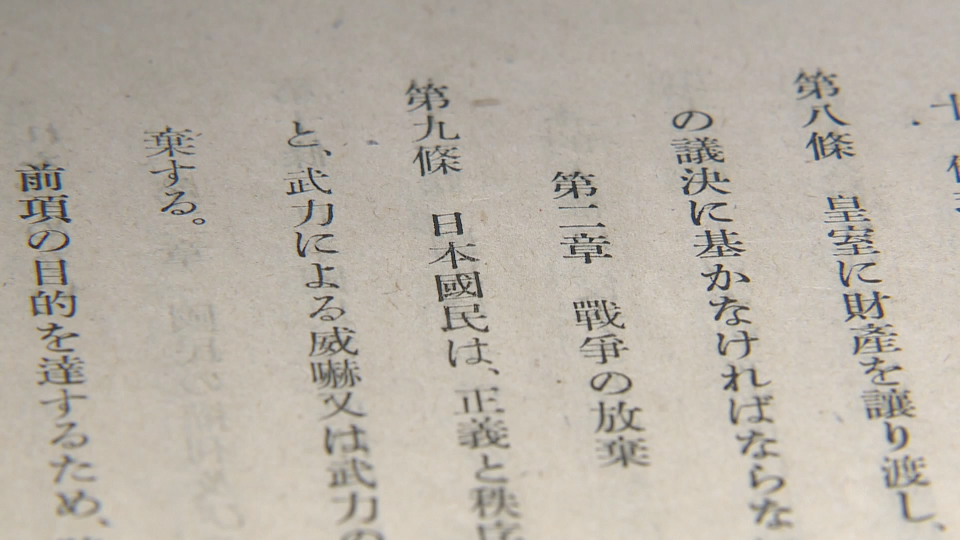 第八條　皇室に財産を讓り渡し、
の議決に基かなければならな
第二章　戰爭の放棄
第九條　日本國民は、正義と秩序
と、武力による威嚇又は武力の
棄する。
前項の目的を達するため、